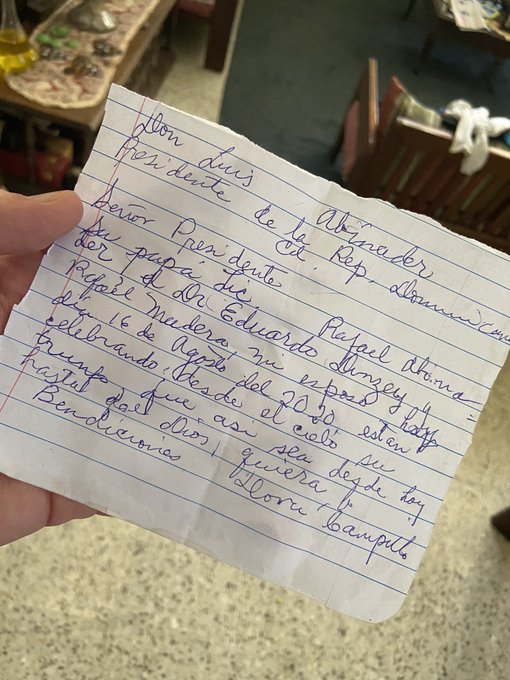 Don Luis Abinader
Presidente de la Rep. Dominicana
Cd.
Señor Presidente
Su papá Lic. Rafael Abina=
der, el Dr. Eduardo y
Rafael mi esposo hoy
día 16 de Agosto del 2020 estan
celebrando desde el cielo su
triunfo, que asi sea desde hoy
hasta que Dios quiera
Bendiciones